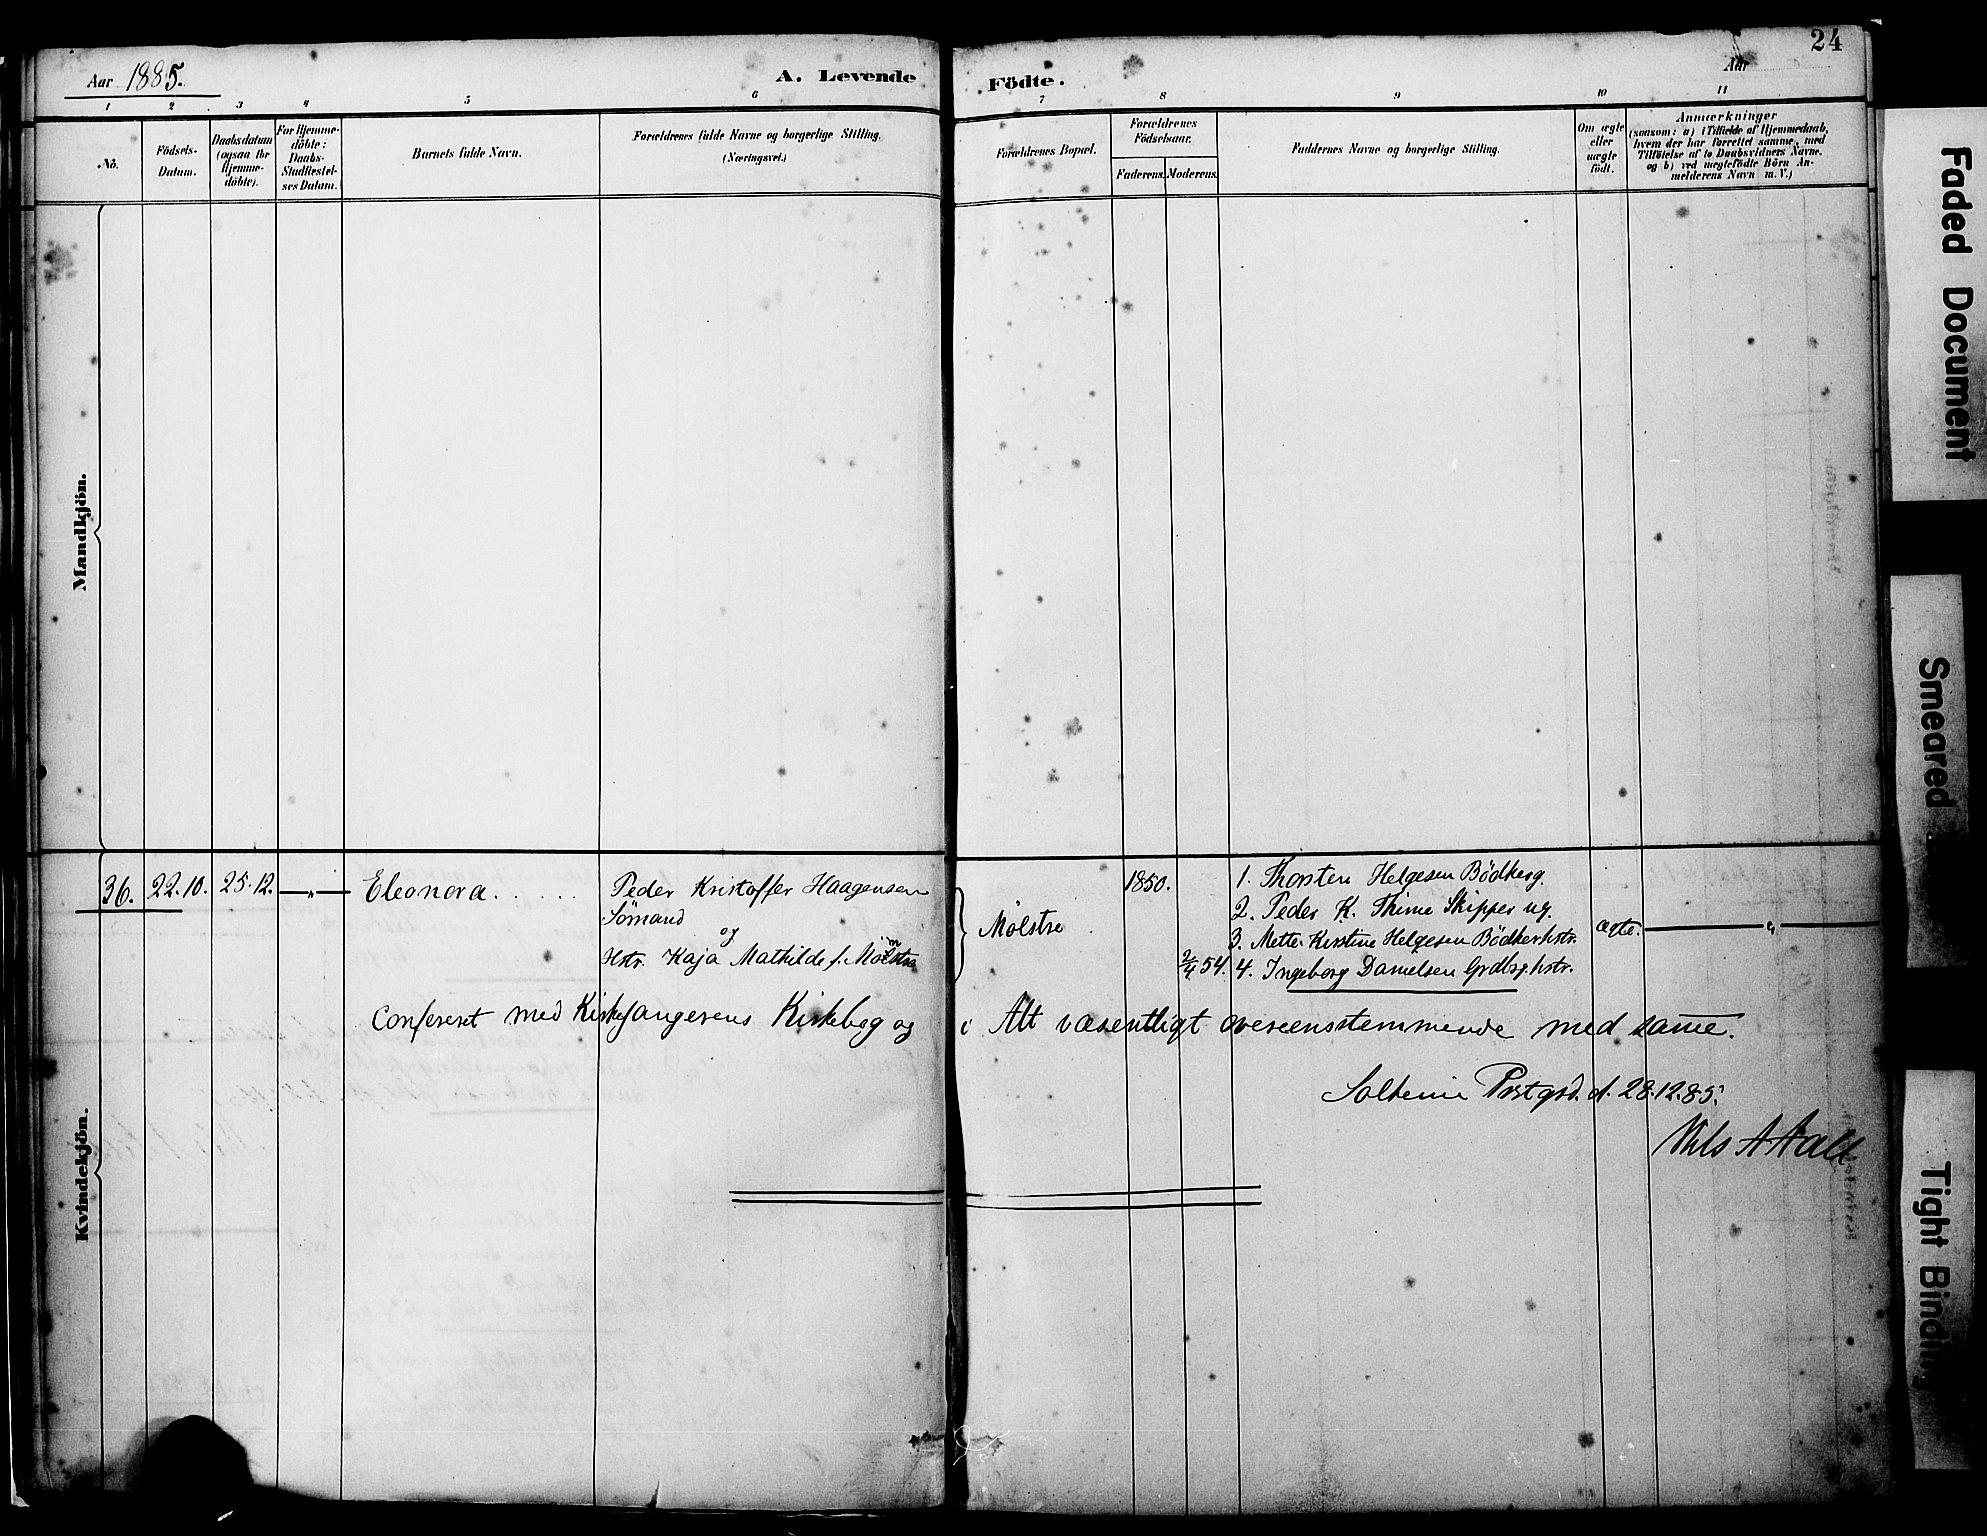 24
Aar 1885.
A. Levende Födte.
Aar
1 2 3 4 5 6 7 8 9 10 11
No.
Födsels-Datum.
Daabsdatum (ogsaa for Hjemme-döbte).
For Hjemme-döbte: Daabs-Stadfæstel-ses Datum.
Barnets fulde Navn.
Forældrenes fulde Navne og borgerlige Stilling. (Næringsvei.)
Forældrenes Bopæl.
Forældrenes Födselsaar.
Faderens. Moderens.
Faddernes Navne og borgerlige Stilling.
Om ægte eller uægte født.
Anmærkninger
(saasom: a) i Tilfælde af Hjemmedaab,
hvem der har forrettet samme, med
Tilföielse af to Daabsvidners Navne.
og b) ved uægtefödte Börn An-
melderens Navn m. V.)
Mandkjön.
Kvindekjön.
36. 22.10. 25.12. — „ — Eleonora. . . . . . Peder Kristoffer Haagensen
Sömand
og
Hstr. Kaja Mathilde f.
Molstre
1850.
2/4 54.
1. Thorsten Helgesen Bödkerg.
2. Peder K. Thime Skipper ug.
3. Mette Kirstine Helgesen Bödkerhstr.
4. Ingeborg Danielsen Grdbrghstr.
ægte. — „ —
Confereret med Kirkesangerens Kirkebog og i Alt væsentligt overeensstemmende med same.
Soltenin Præstgrd. d. 28.12.85.
Nils A Aall
Faded Document
Smeared
Tight Binding